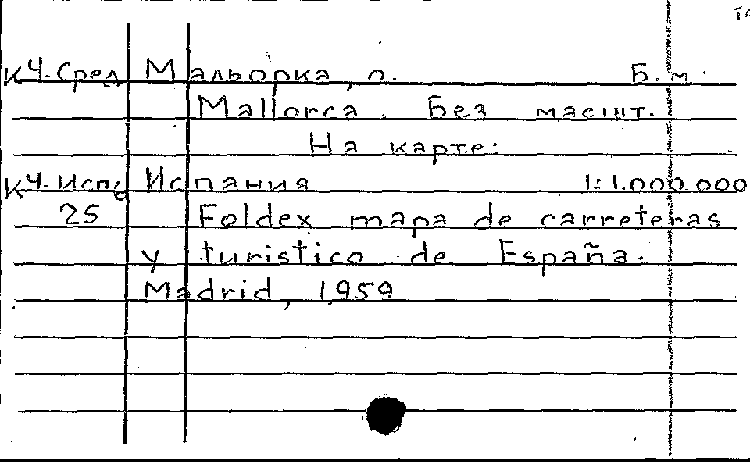 К4.Сред Мальорка, о. Б.м.
Mallorca. Без масшт.
На карте:
К4.Испа Испания 1:1.000.000
25 Foldex mapa de carreteras
y turistico de España.
Madrid, 1959